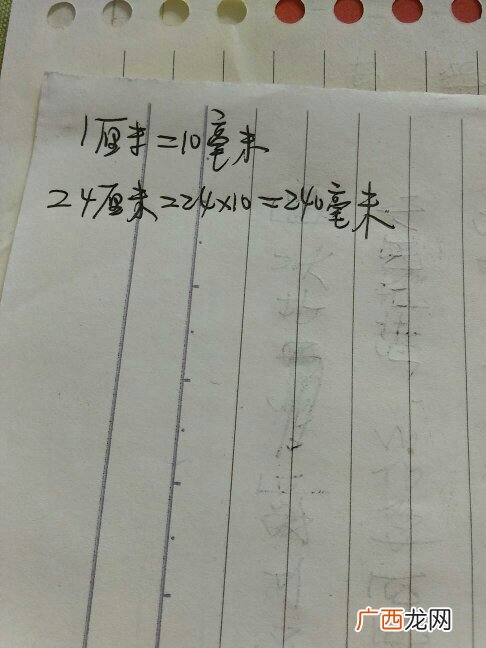 1厘米=10毫米
24厘米=24×10=240毫米
广西龙网